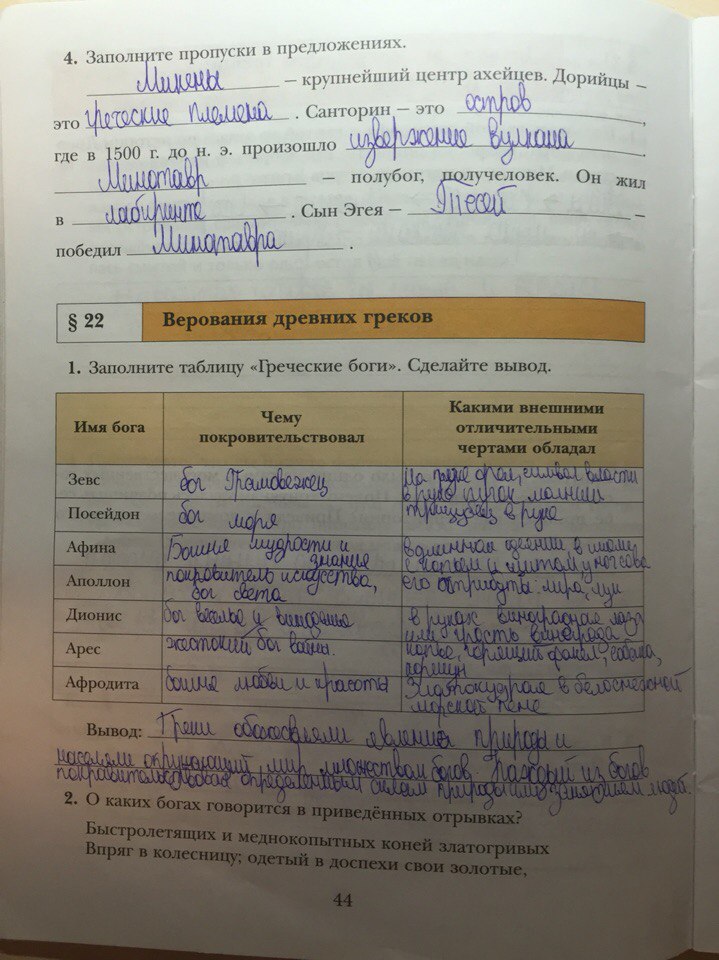 4. Заполните пропуски в предложениях.
Микены – крупнейший центр ахейцев. Дорийцы –
это греческие племена. Санторин – это остров,
где в 1500 г. до н. э. произошло извержение вулкана.
Минотавр – полубог, получеловек. Он жил
в лабиринте. Сын Эгея – Тесей –
победил Минотавра.
§ 22 Верования древних греков
1. Заполните таблицу «Греческие боги». Сделайте вывод.
Имя бога
Чему
покровительствовал
Какими внешними
отличительными
чертами обладал
Зевс
бог Громовежец
На руке орел, символ власти
в руке пучок молнии
Посейдон
бог моря
тризубез в руке
Афина
Богиня мудрости и
знания
в длинном одеянии, в шлеме,
с копьем и щитом у ног сова
Аполлон
покровитель искусства,
бог света
его аттрибуты: лира, лук
Дионис
бог веселье и виноделья
в руках виноградная лоза
или гроздь винограда
Арес
жестокий бог войны.
копье, горящий факел, собака,
коршун
Афродита
богиня любви и красоты
Златокудрая в белоснежной
морской пене
Вывод: Греки обожествляли явления природы и
населяли окружающий мир множеством богов. Каждый из богов
покровительствовал определенным силам природы или занятием людей.
2. О каких богах говорится в приведённых отрывках?
Быстролетящих и меднокопытных коней златогривых
Впряг в колесницу; одетый в доспехи свои золотые,
44